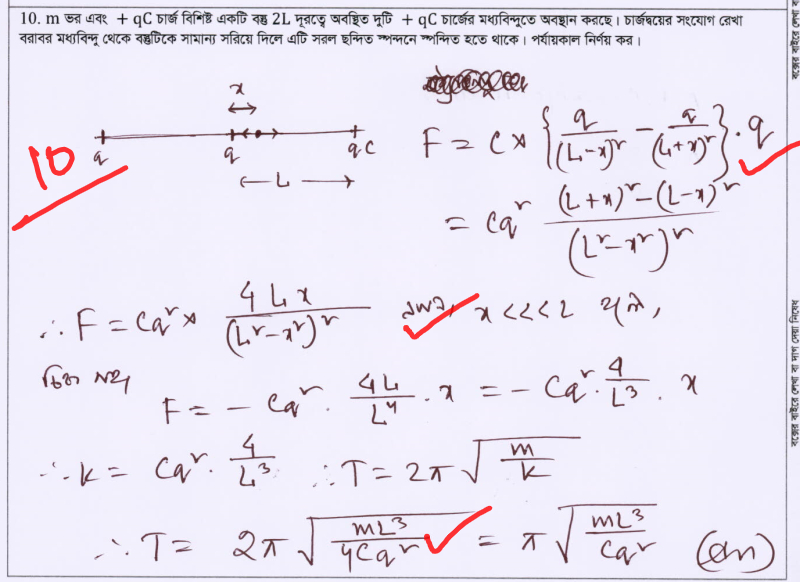 10. m ভর এবং + qC চার্জ বিশিষ্ট একটি বস্তু 2L দূরত্বে অবস্থিত দুটি + qC চার্জের মধ্যবিন্দুতে অবস্থান করছে। চার্জদ্বয়ের সংযোগ রেখা
বরাবর মধ্যবিন্দু থেকে বস্তুটিকে সামান্য সরিয়ে দিলে এটি সরল ছন্দিত স্পন্দনে স্পন্দিত হতে থাকে। পর্যায়কাল নির্ণয় কর।
x
q q qC
L
10
F = C × {q/(L-x)² - q/(L+x)²} · q
= Cq² ((L+x)² - (L-x)²)/(L²-x²)²
∴ F = Cq² × 4Lx/(L²-x²)² x <<< L হলে,
F = - Cq² · 4L/L⁴ · x = - Cq² · 4/L³ · x
∴ k = Cq² · 4/L³ ∴ T = 2π √(m/k)
∴ T = 2π √(mL³/4Cq²) = π √(mL³/Cq²) (Ans)
বক্সের বাইরে লেখা বা দাগ দেয়া নিষেধ